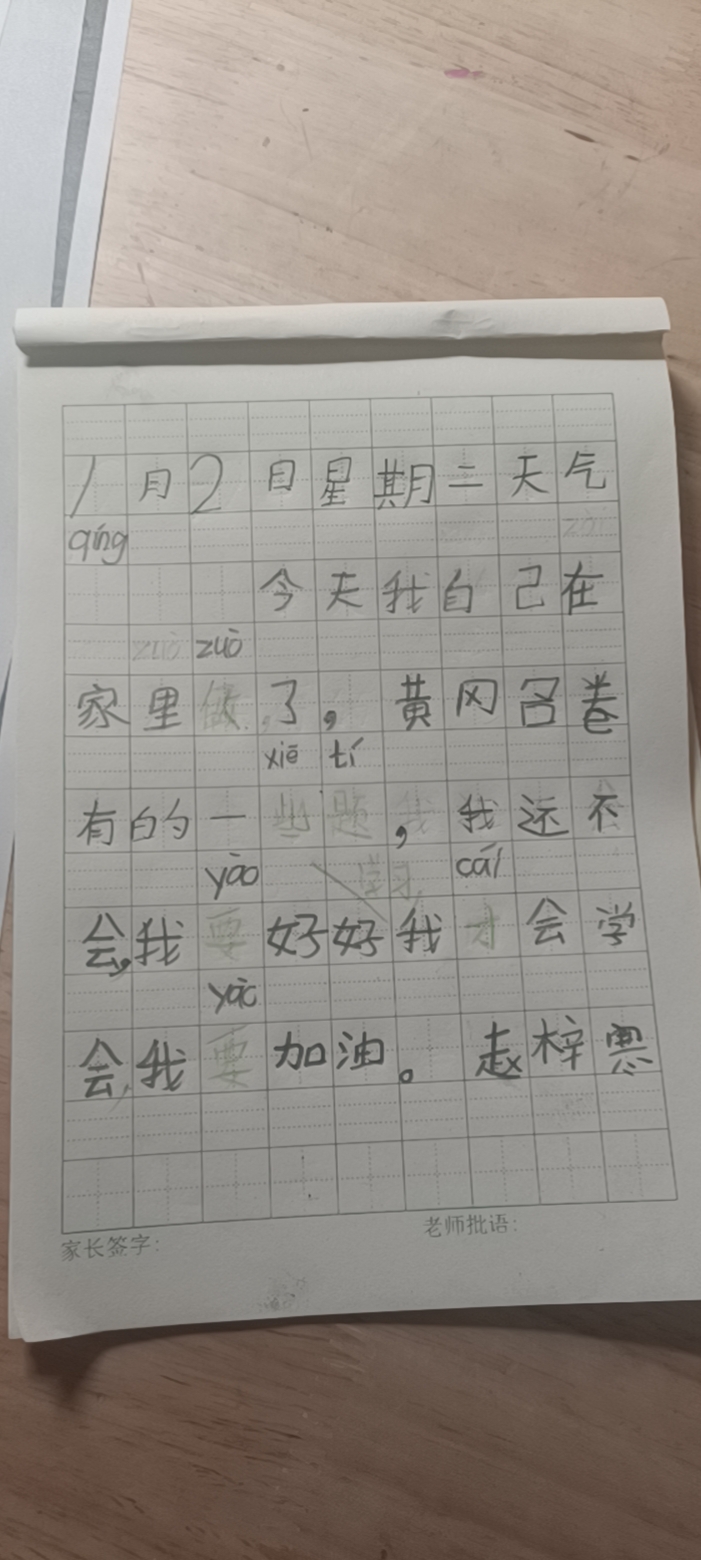 1月2日星期二天气
qíng
今天我自己在
zuò zuò
家里做了，黄冈名卷
xiē tí
有的一些题，我还不
yào 学习 cái
会，我要好好我才会学
yào
会，我要加油。赵梓
家长签字： 老师批语：